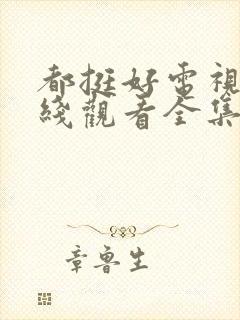 都挺好電視
綫觀看全集
章魯生